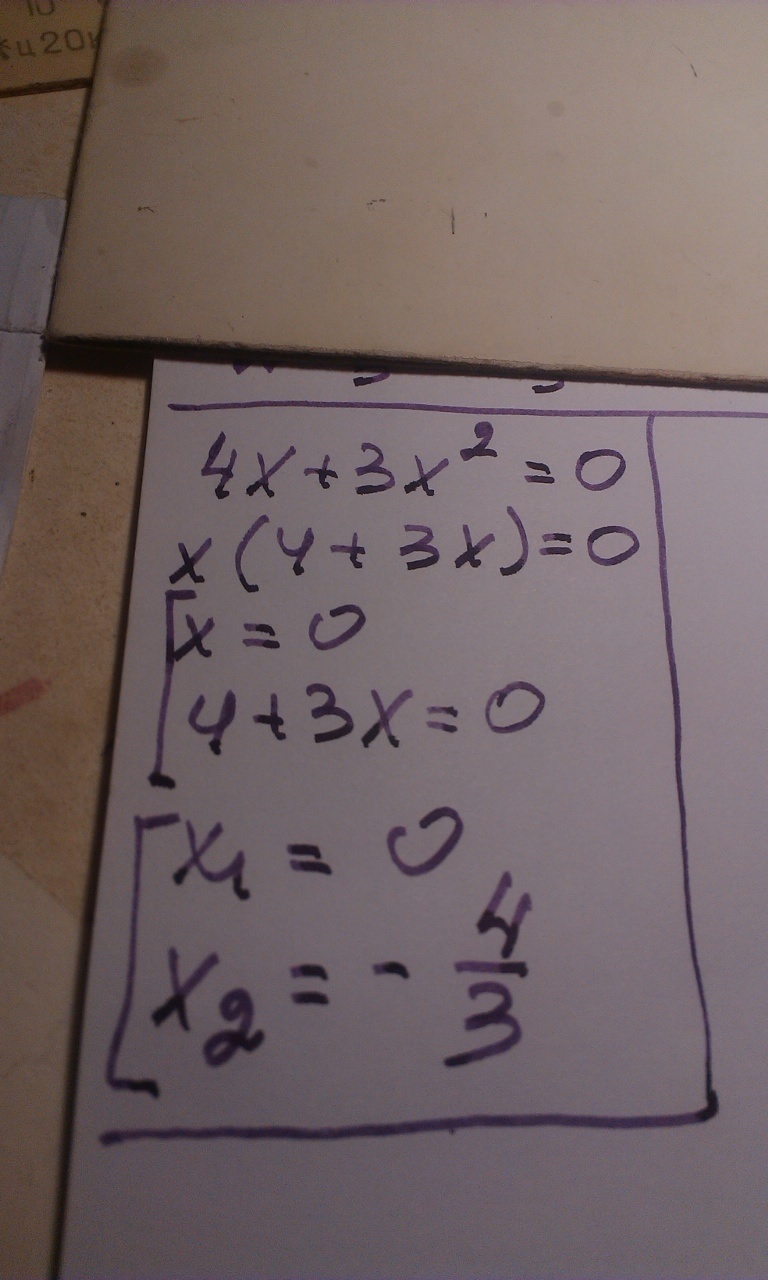 10
ц20к
4x+3x²=0
x(4+3x)=0
x=0
4+3x=0
x₁ = 0
x₂ = - 4/3